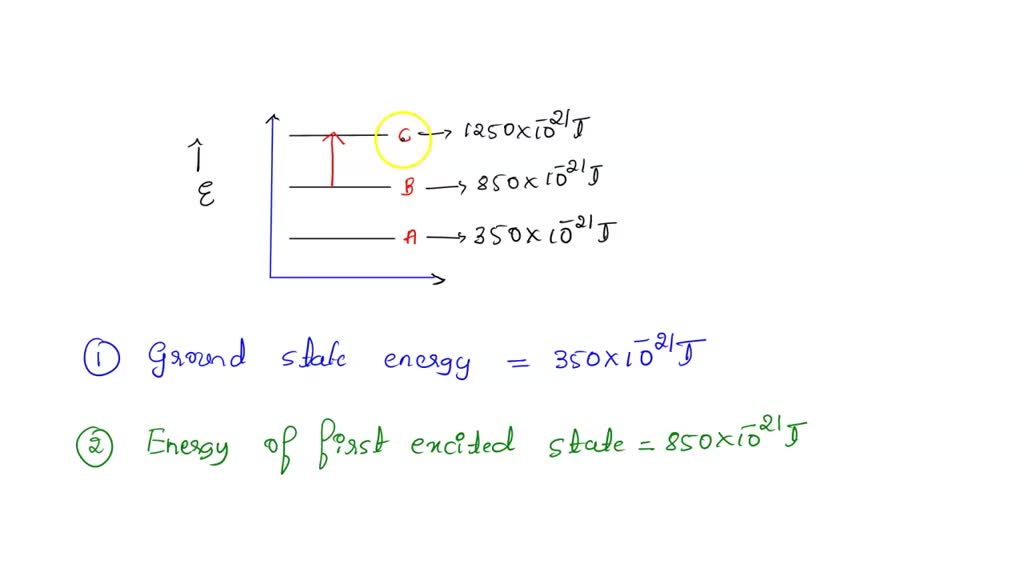 C → 1250×10⁻²¹J
B → 850×10⁻²¹J
ε
A → 350×10⁻²¹J
① Ground state energy = 350×10⁻²¹J
② Energy of first excited state = 850×10⁻²¹J